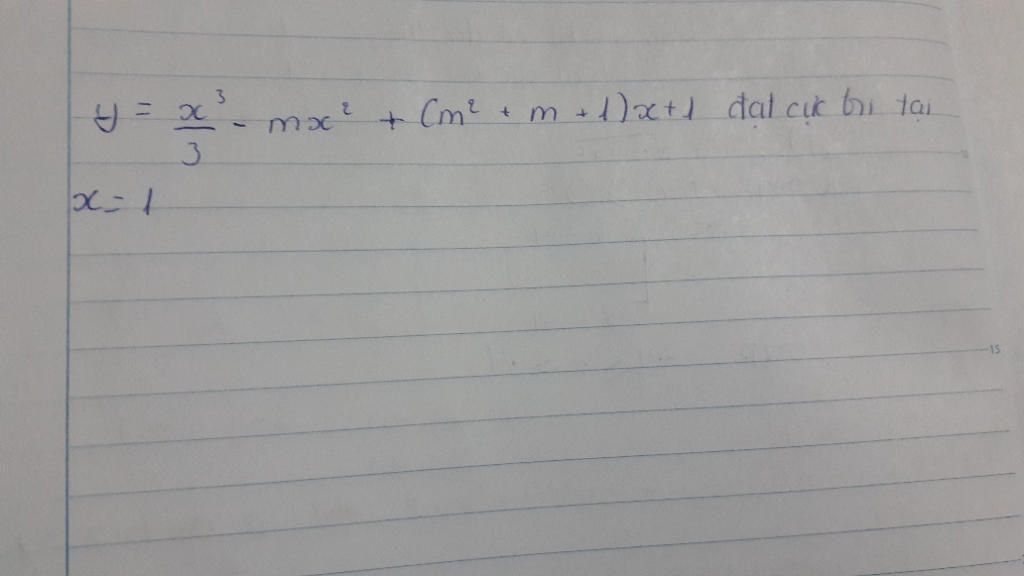 y = x³/3 - mx² + (m² + m + 1)x+1 đạt cực trị tại
x = 1
15